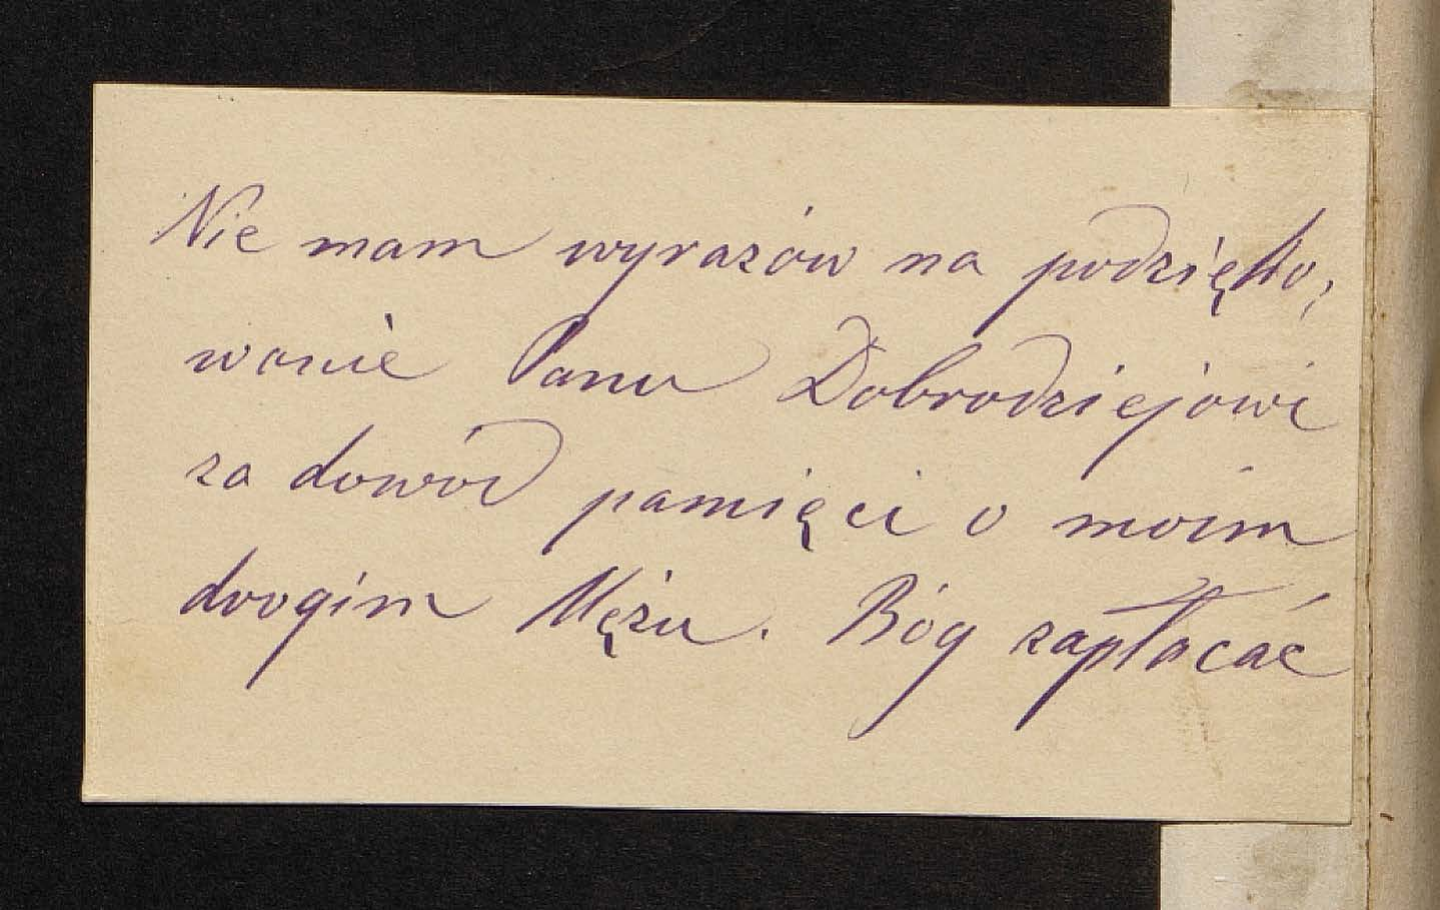 Nie mam wyrazów na podzięko,
wanie Panu Dobrodziejowi
za dowód pamięci o moim
drogim Mężu. Bóg zapłacać